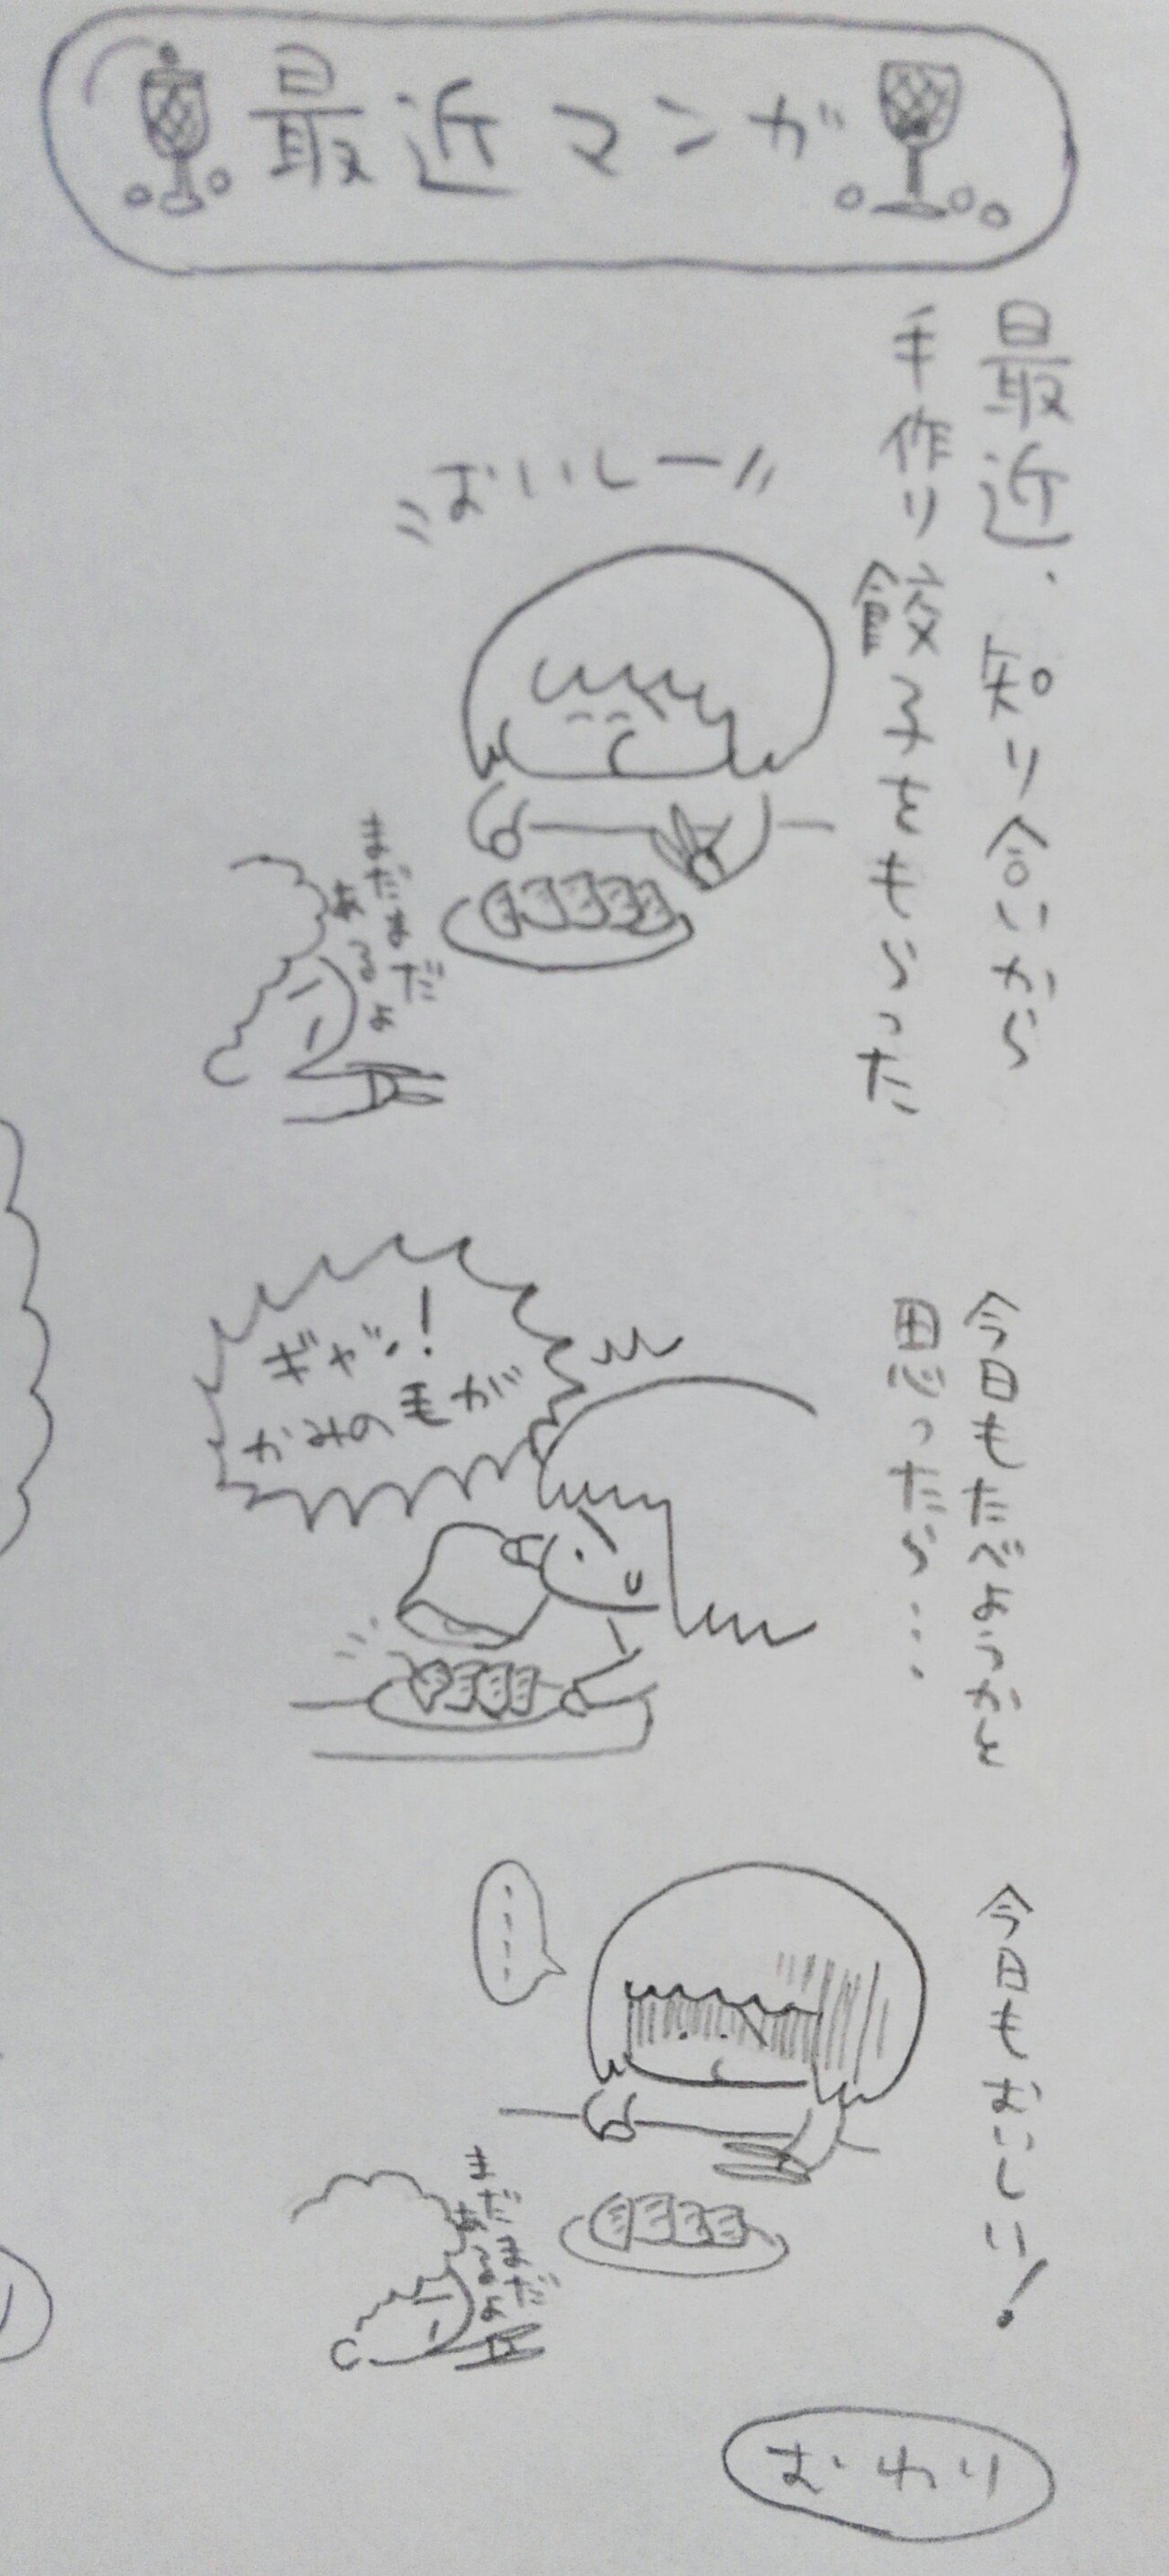 最近マンガ
最近、知り合いから
手作り餃子をもらった
おいしー
まだまだ
あるよ
今日もたべようかと
思ったら・・・
ギャー!
かみの毛が
今日もおいしい!
・・・・
まだまだ
あるよ
おわり